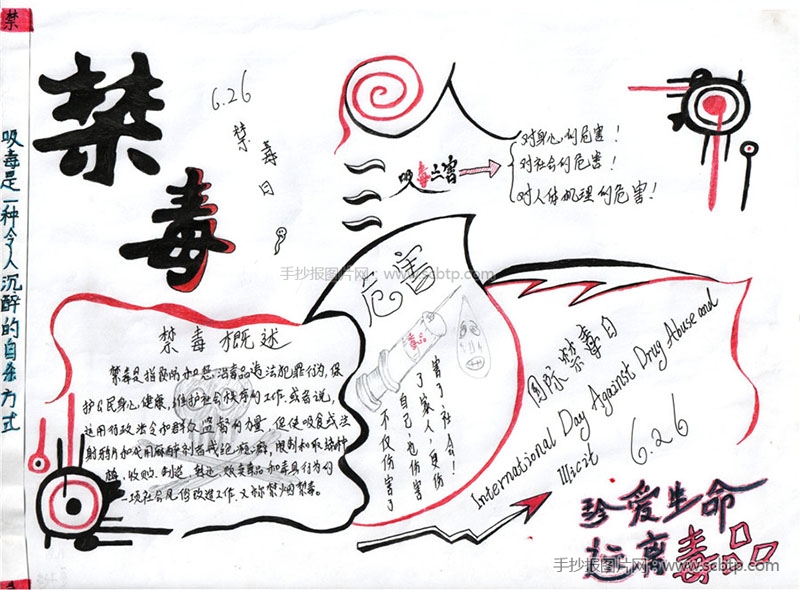 禁
吸毒是一种令人沉醉的自杀方式
禁毒
6.26
禁毒日
吸毒之害
对身心的危害!
对社会的危害!
对人体机理的危害!
手抄报图片网:www.scbtp.com
危害
毒品
不仅伤害了
自己,也伤害
了家人,更伤
害了社会!
禁毒概述
禁毒是指预防和惩治毒品违法犯罪行为,保
护公民身心健康,维护社会秩序的工作.或者说,
运用行政法令和群众监督的力量,促使吸食或注
射鸦片和使用麻醉剂者戒绝
瘾,收购、制造、贩卖毒品和毒具行为的
一项社会风俗改进工作.又称禁烟禁毒。
国际禁毒日
International Day Against Drug Abuse and
Illicit
6.26
珍爱生命
远离毒品
手抄报图片网:www.scbtp.com